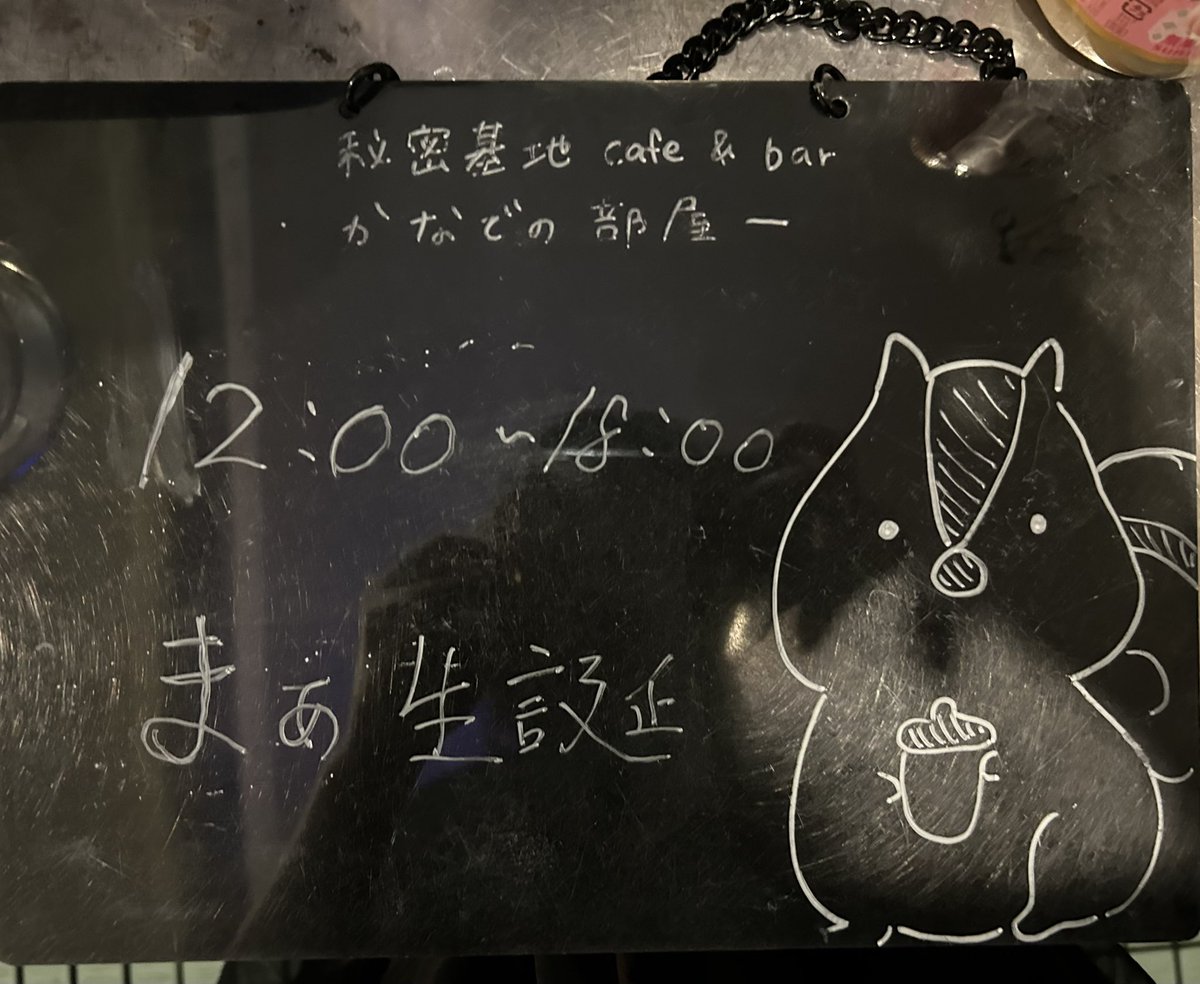 秘密基地 cafe & bar
かなでの部屋ー
12:00~18:00
まぁ生誕